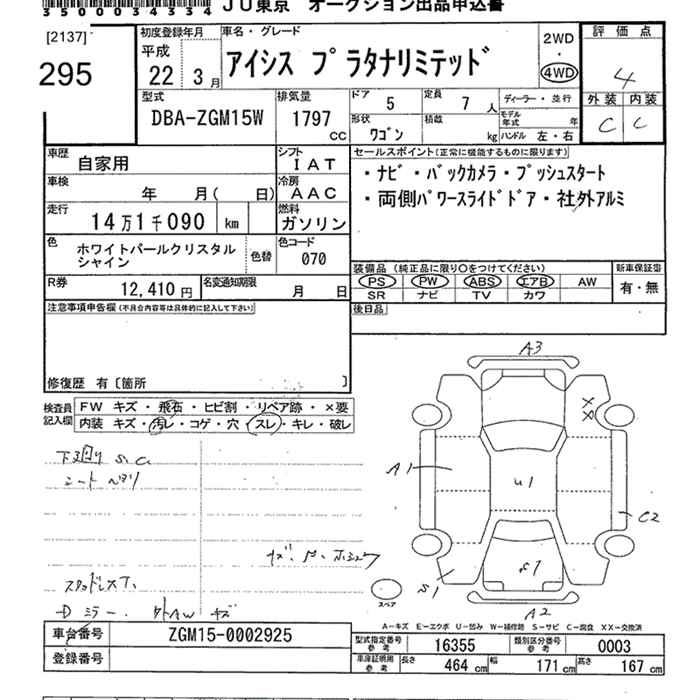 350003 4334 JU東京 オークション出品申込書
[2137]
295
初度登録年月 平成 22年 3月
車名・グレード アイシス プラタナリミテッド
2WD・4WD
評価点 4
外装 C 内装 C
型式 DBA-ZGM15W
排気量 1797 CC
ドア 5
定員 7 人
ディーラー・並行
形状 ワゴン
積載 kg
モデル年式 年
ハンドル 左・右
車歴 自家用
シフト I A T
車検 年 月( 日)
冷房 A A C
走行 14万1千090 km
燃料 ガソリン
色 ホワイトパールクリスタルシャイン
色替
色コード 070
R券 12,410 円
名変通知期限 月 日
セールスポイント(正常に機能するものに限ります)
・ナビ・バックカメラ・プッシュスタート
・両側パワースライドドア・社外アルミ
装備品 (純正品に限り○をつけてください)
PS PW ABS エアB AW
SR ナビ TV カワ
新車保証書 有・無
後日品
注意事項申告欄(不具合内容等は具体的に記入して下さい)
修復歴 有〔箇所 〕
検査員記入欄
FW キズ・飛石・ヒビ割・リペア跡・×要
内装 キズ・汚レ・コゲ・穴・スレ・キレ・破レ
下廻り S.C
シート ヘタリ
スタッドレスT.
Dミラー. 外AW キズ
A3
XX
A1
U1
C2
S1
S1
A2
スペア
A-キズ E-エクボ U-凹み W-補修跡 S-サビ C-腐食 XX-交換済
車台番号 ZGM15-0002925
登録番号
型式指定番号 参考 16355
類別区分番号 参考 0003
車庫証明用 参考 長さ 464 cm 幅 171 cm 高さ 167 cm